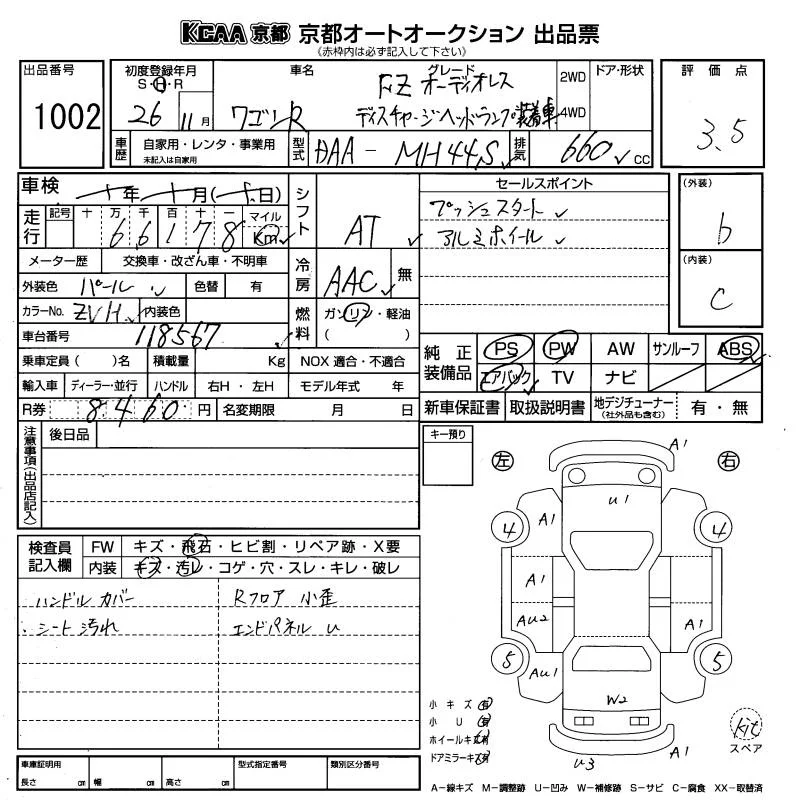 KCAA 京都 京都オートオークション 出品票
(赤枠内は必ず記入して下さい)
出品番号
1002
初度登録年月
S・H・R
26 11月
車名
ワゴンR
グレード
FZ オーディオレス
ディスチャージヘッドランプ装着車
2WD
4WD
ドア・形状
評価点
3.5
車歴
自家用・レンタ・事業用
未記入は自家用
型式
DAA-MH44S
排気
660 cc
車検
年 月 ( 日)
走行
記号 十 万 千 百 十 一 マイル
6 6 1 7 8 Km
メーター歴 交換車・改ざん車・不明車
外装色 パール 色替 有
カラーNo. ZVH 内装色
車台番号 118567
乗車定員 ( )名 積載量 Kg NOX 適合・不適合
輸入車 ディーラー・並行 ハンドル 右H・左H モデル年式 年
R券 8460 円 名変期限 月 日
シフト AT
冷房 AAC 無
燃料 ガソリン・軽油
( )
セールスポイント
プッシュスタート
アルミホイール
(外装)
b
(内装)
c
純正装備品
PS PW AW サンルーフ ABS
エアバック TV ナビ
新車保証書 取扱説明書 地デジチューナー (社外品も含む) 有・無
注意事項(出品店記入)
後日品
検査員記入欄
FW キズ・飛石・ヒビ割・リペア跡・X要
内装 キズ・汚レ・コゲ・穴・スレ・キレ・破レ
ハンドル カバー
シート 汚れ
Rフロア 小歪
エンドパネル U
キー預り
左
右
A1
U1
4 A1 4
A1
AU2 A1
5 AU1 5
W2
U3 A1
小キズ 有
小U 有
ホイールキズ 有
ドアミラーキズ 有
kit
スペア
車庫証明用
長さ cm 幅 cm 高さ cm
型式指定番号
類別区分番号
A-線キズ M-調整跡 U-凹み W-補修跡 S-サビ C-腐食 XX-取替済